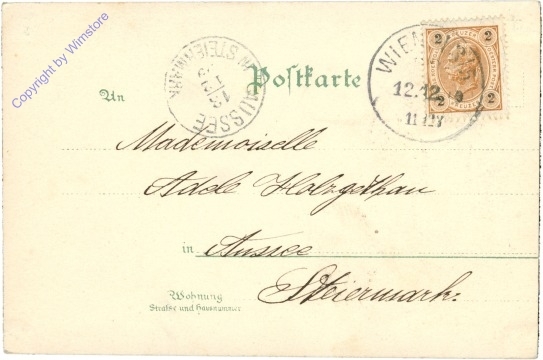 Copyright by Wimstore
Postkarte
AUSSEE IN STEIERMARK
13
12
WIEN
12.12.
2 KREUZER 2
2 2
An
Mademoiselle
Adele Holzgethan
in Aussee
Steiermark.
Wohnung
Straße und Hausnummer